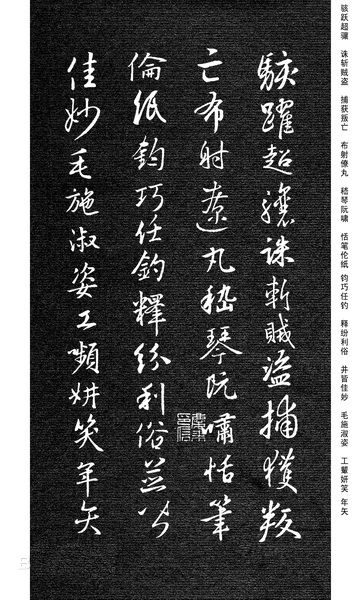 骇跃超骧 诛斩贼盗 捕获叛亡 布射僚丸 嵇琴阮啸 恬笔伦纸 钧巧任钓 释纷利俗 并皆佳妙 毛施淑姿 工颦妍笑 年矢
駭躍超驤誅斬賊盜捕獲叛
亡布射遼丸嵇琴阮嘯恬筆
倫紙鈞巧任釣釋紛利俗並皆
佳妙毛施淑姿工顰妍笑年矢